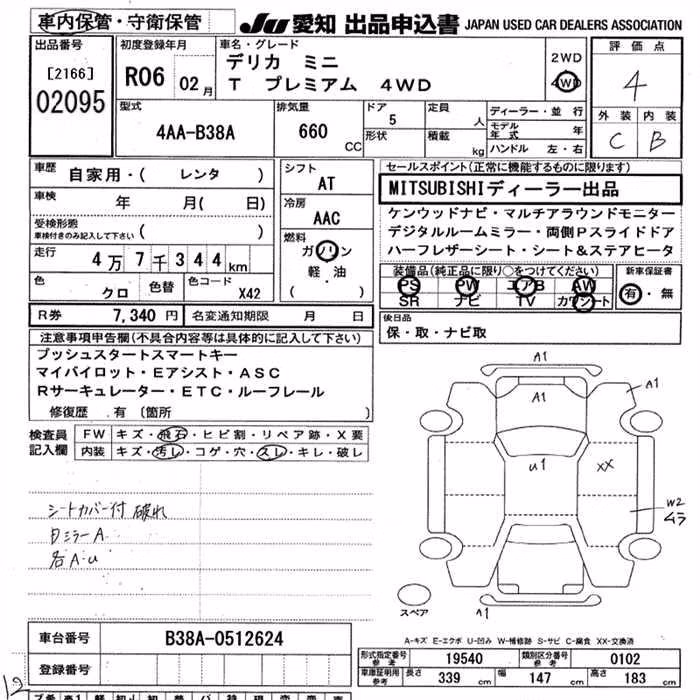 車内保管・守衛保管
JU 愛知 出品申込書 JAPAN USED CAR DEALERS ASSOCIATION
出品番号
[2166]
02095
初度登録年月
R06 02月
車名・グレード
デリカ ミニ
T プレミアム 4WD
2WD
4WD
評価点
4
外装 内装
C B
型式
4AA-B38A
排気量
660 CC
ドア
5
形状
定員
人
積載
kg
ディーラー・並行
モデル年式 年
ハンドル 左・右
車歴
自家用・( レンタ )
車検 年 月( 日)
受検形態
車検付きのみ記入して下さい ( )
走行 4万7千344km
色 クロ 色替 色コード X42
シフト
AT
冷房
AAC
燃料
ガソリン
軽・油
( )
セールスポイント(正常に機能するものに限ります)
MITSUBISHIディーラー出品
ケンウッドナビ・マルチアラウンドモニター
デジタルルームミラー・両側Pスライドドア
ハーフレザーシート・シート&ステアヒータ
装備品(純正品に限り○をつけてください)
PS PW エアB AW
SR ナビ TV カワシート
新車保証書
有・無
R券 7,340円 名変通知期限 月 日
後日品
保・取・ナビ取
注意事項申告欄(不具合内容等は具体的に記入して下さい)
プッシュスタートスマートキー
マイパイロット・Eアシスト・ASC
Rサーキュレーター・ETC・ルーフレール
修復歴 有 〔箇所 〕
検査員
記入欄
FW キズ・飛石・ヒビ割・リペア跡・X要
内装 キズ・汚レ・コゲ・穴・スレ・キレ・破レ
シートカバー付 破れ
ミラーA
各A・u
A1
A1
A1
u1
XX
W2
ムラ
A1
スペア
A-キズ E-エクボ U-凹み W-補修跡 S-サビ C-腐食 XX-交換済
車台番号 B38A-0512624
登録番号
型式指定番号
参考
19540
類別区分番号
参考
0102
車庫証明用
参考
長さ 339 cm 幅 147 cm 高さ 183 cm
12